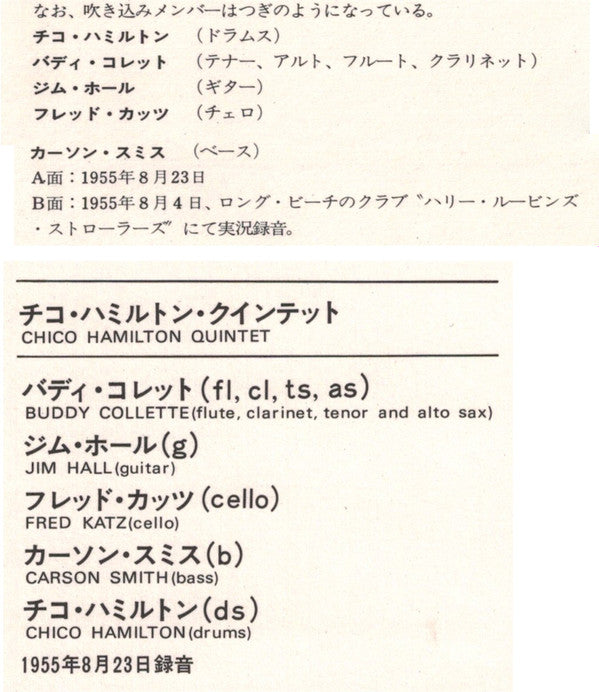 なお、吹き込みメンバーはつぎのようになっている。
チコ・ハミルトン （ドラムス）
バディ・コレット （テナー、アルト、フルート、クラリネット）
ジム・ホール （ギター）
フレッド・カッツ （チェロ）
カーソン・スミス （ベース）
A面：1955年8月23日
B面：1955年8月4日、ロング・ビーチのクラブ〝ハリー・ルービンズ
・ストローラーズ〟にて実況録音。
チコ・ハミルトン・クインテット
CHICO HAMILTON QUINTET
バディ・コレット(fl, cl, ts, as)
BUDDY COLLETTE(flute, clarinet, tenor and alto sax)
ジム・ホール(g)
JIM HALL(guitar)
フレッド・カッツ(cello)
FRED KATZ(cello)
カーソン・スミス(b)
CARSON SMITH(bass)
チコ・ハミルトン(ds)
CHICO HAMILTON(drums)
1955年8月23日録音